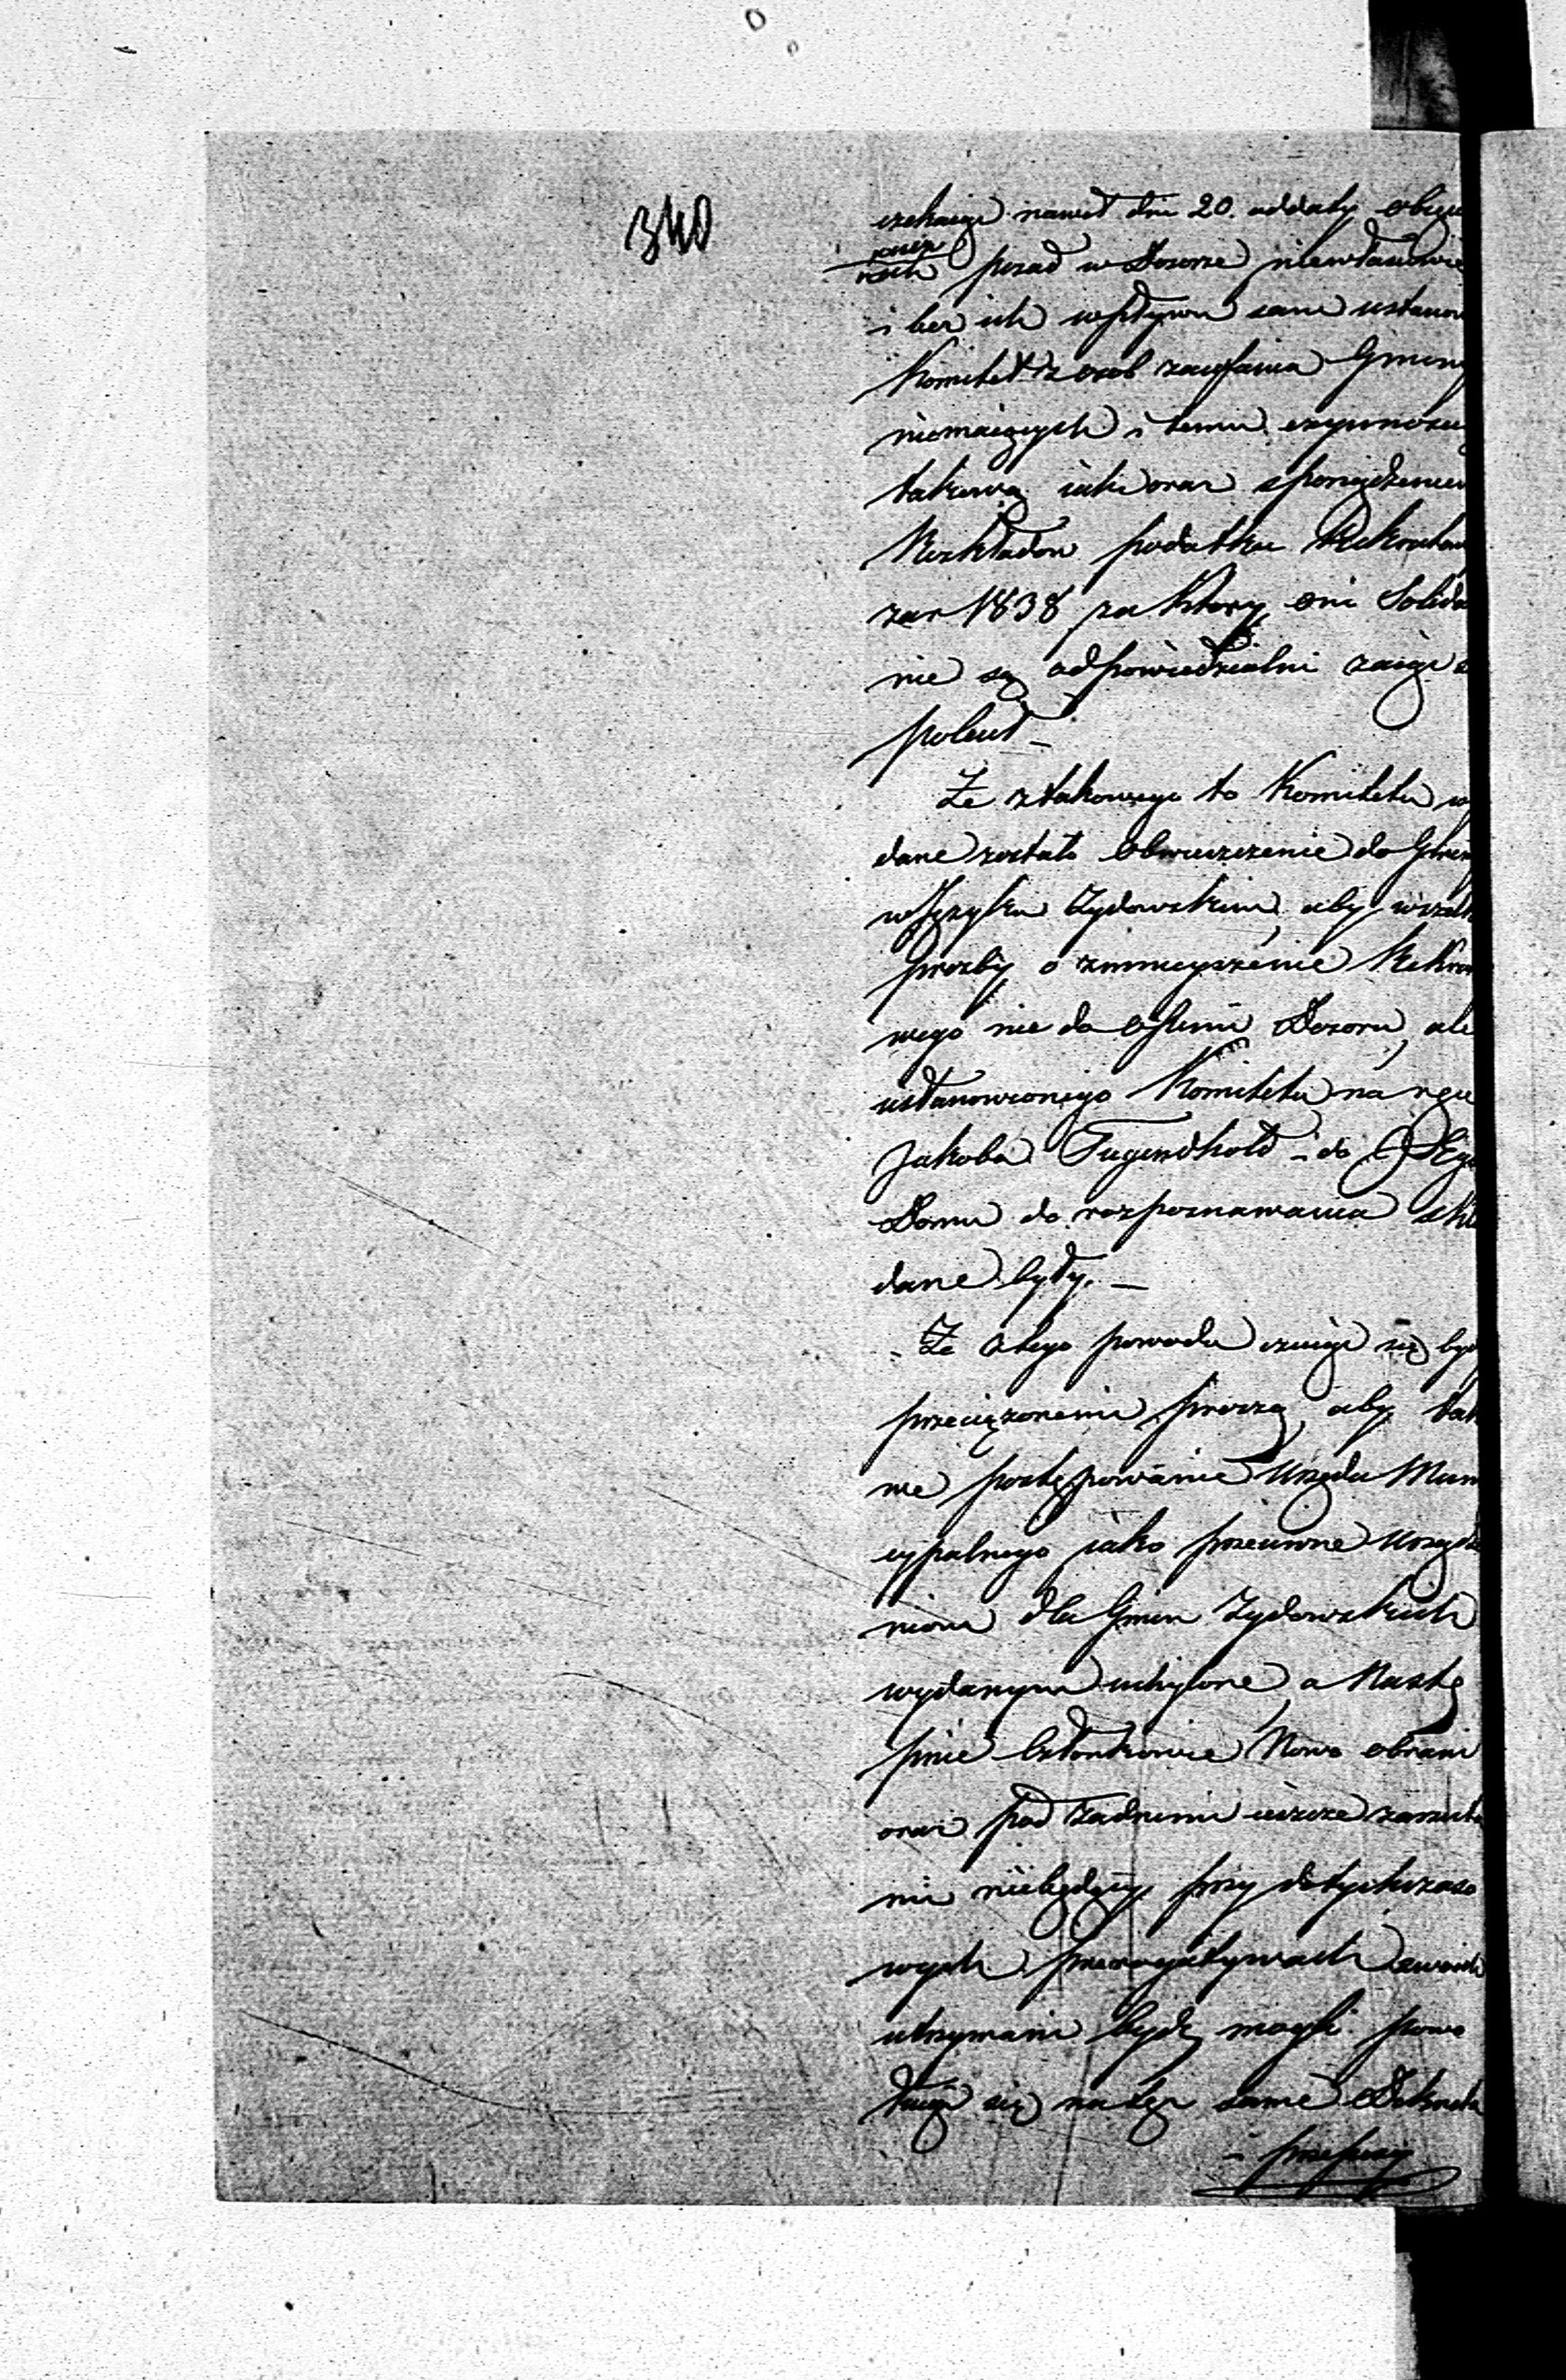 340
czekaiąc nawet dni 20. oddały obięc
przez
nich posad w Dozorze niewłaściwie
i bez ich wpływu sam ustanow
Komitet z osob zaufania Gminy
niemaiących i temu czynnosc
takową iak oraz sporządzeniem
Rozkładow podatku Rekrutow
za r 1838 za ktory oni Solida
nie są odpowiedzialni zaiąc s
polecił –
Ze z takowego to Komitetu wy
dane zostało Obwieszczenie do Gminy
w Języku Zydowskim, aby wszelk
prozby o zmnieyszenie Rekru
wego nie do Dozoru, ale
ustanowionego Komitetu na ręce
Jakoba Tugendhold – do
Domu do rozpoznawania skła
dane były. –
Ze z tego powodu czuiąc się byd
przeciążonemi proszą, aby tak
we postępowanie Urzędu Muni
cypalnego iako przeciwne Urządze
niom dla Gmin Zydowskich
wydanym uchylone, a Nastę
pnie Członkowie Nowo obrani
oraz pod zadnemi ieszcze zarzuta
mi niebędący przy dotychczaso
wych prerogatywach swoich
utrzymani bydz mogli. powo
łuiąc się na też same Dekreta
i przepisy